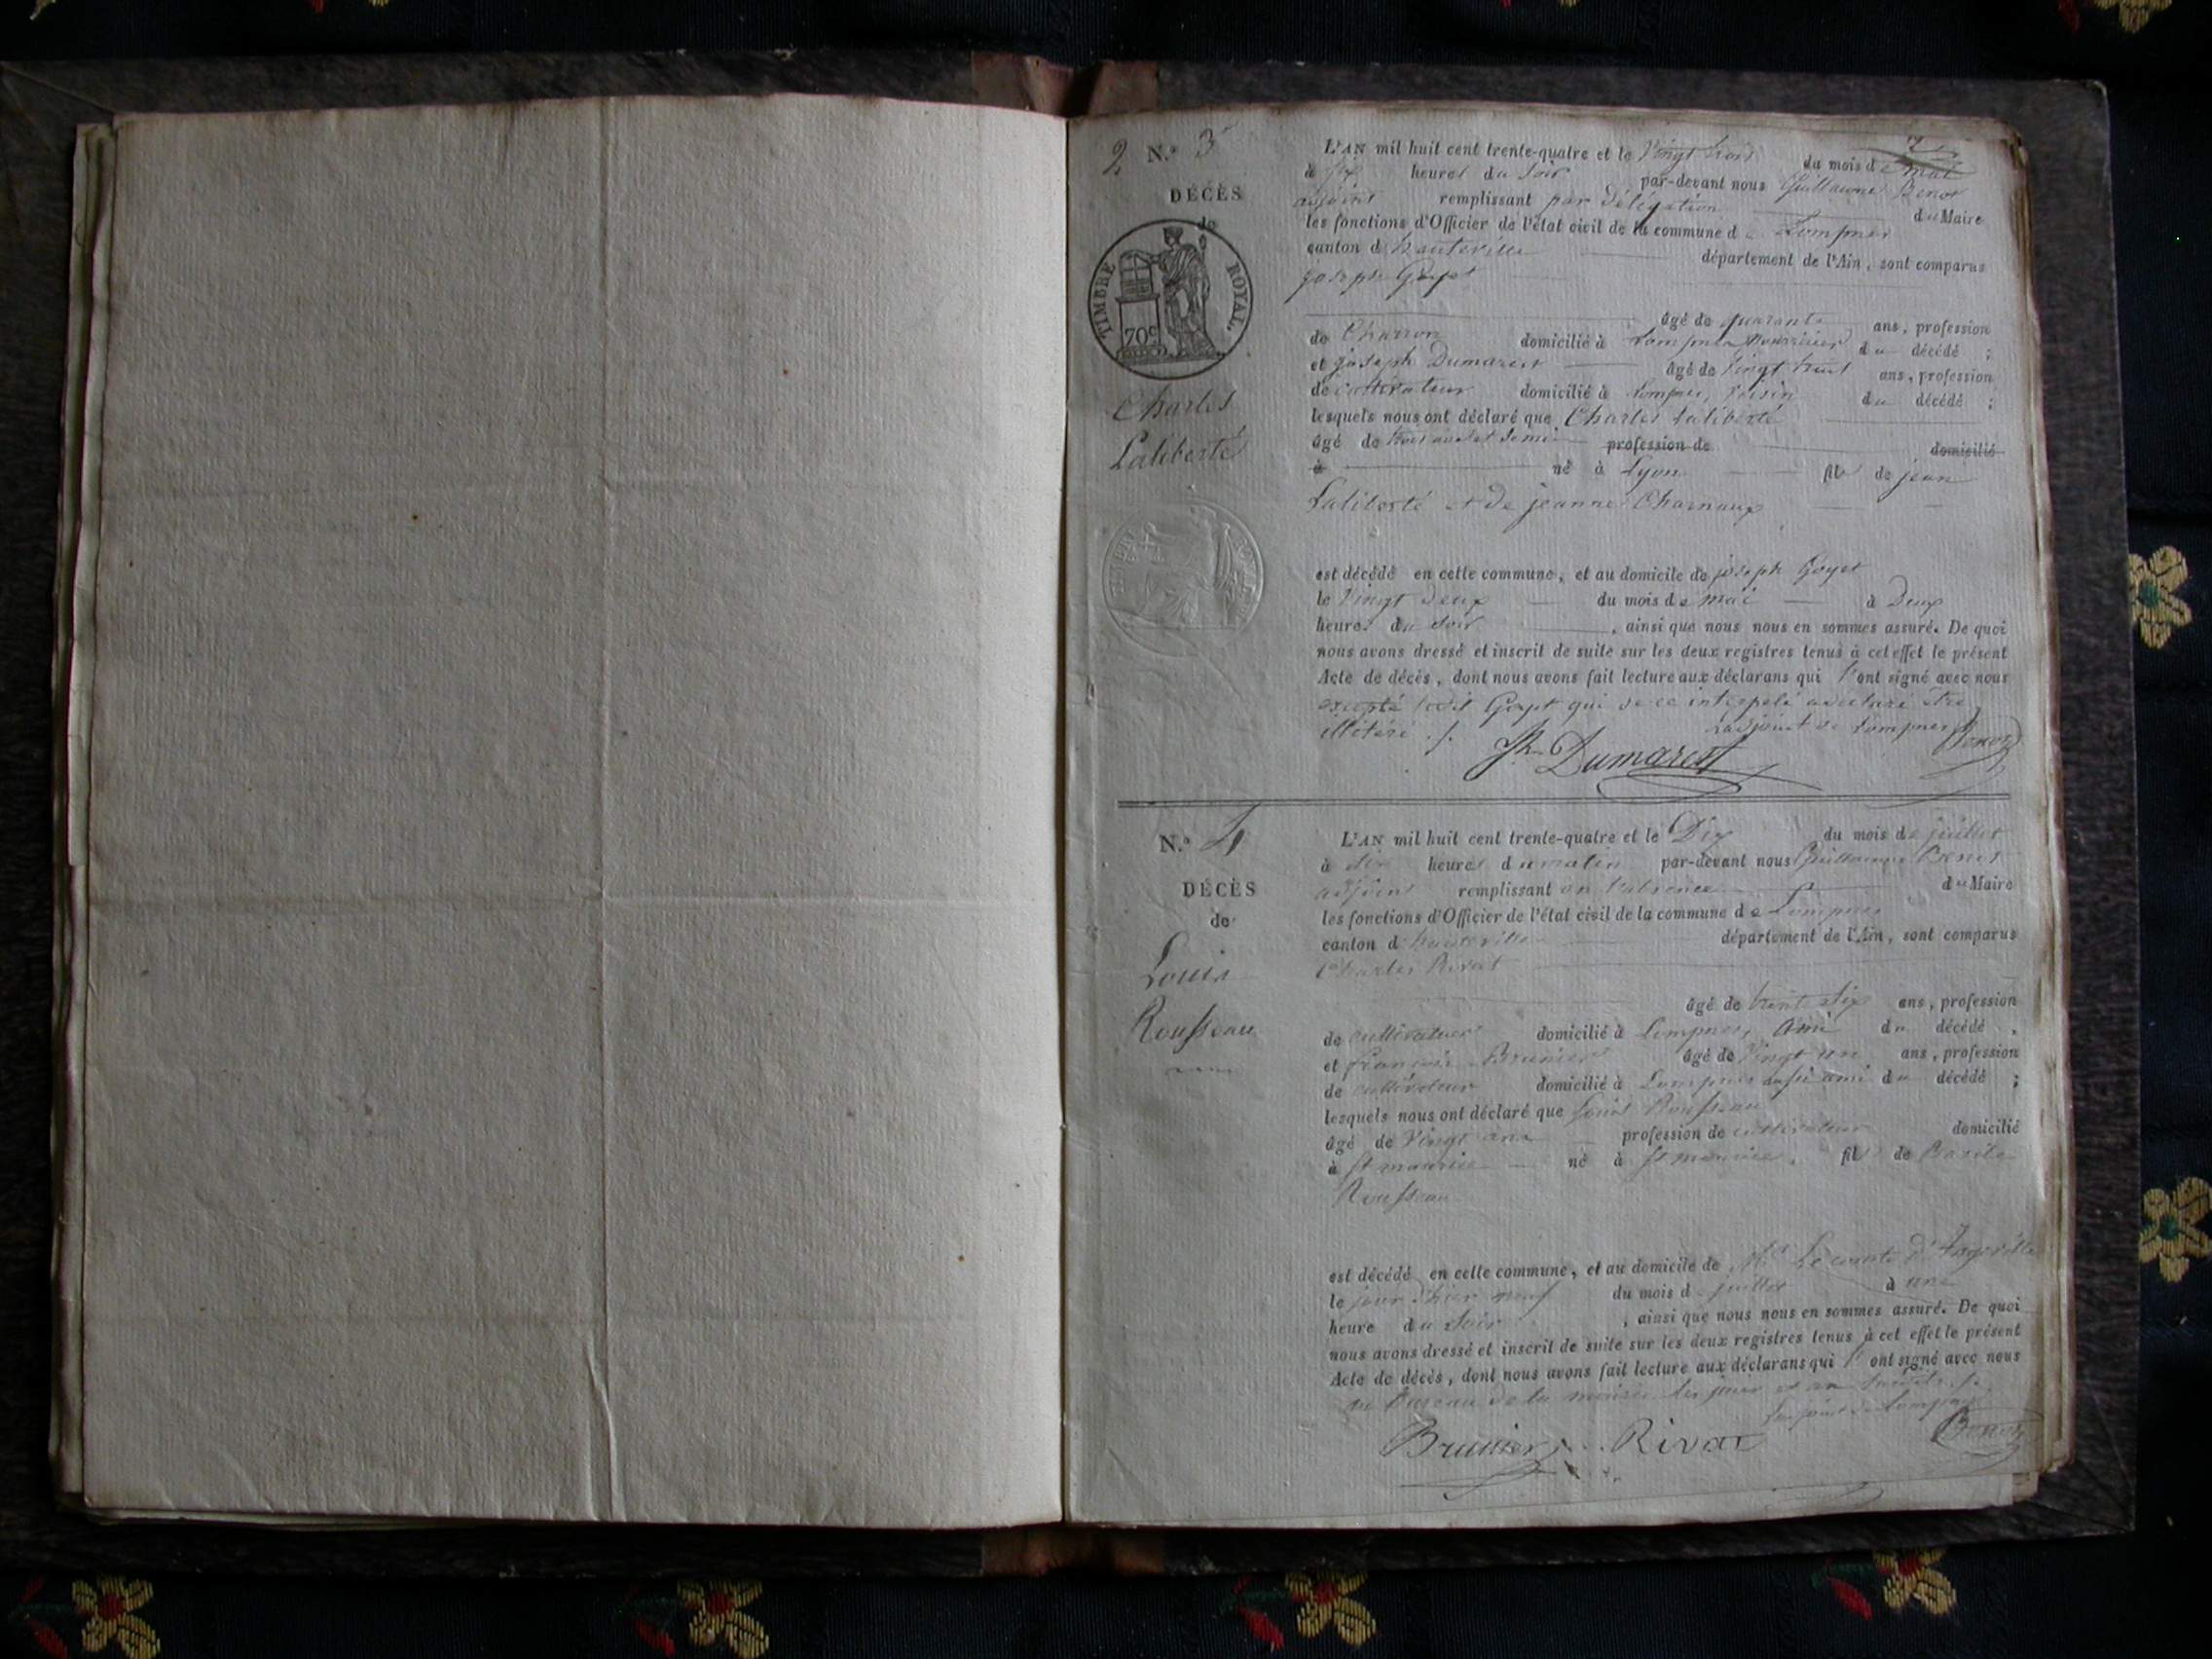 2 N.º 3
DÉCÈS
de
TIMBRE ROYAL.
70ᶜ
Charles
Laliberté
L'AN mil huit cent trente-quatre et le Vingt trois du mois de mai
à six heures du soir par-devant nous Guillaume Benoz
adjoint remplissant par délégation du Maire
les fonctions d'Officier de l'état civil de la commune de Lompnes
canton d'hauteville département de l'Ain, sont comparus
joseph Goyet
âgé de quarante ans, profession
de Charron domicilié à Lompnes, nourricier du décédé ;
et joseph Dumarest âgé de Vingt huit ans, profession
de cultivateur domicilié à Lompnes, Voisin du décédé ;
lesquels nous ont déclaré que Charles Laliberté
âgé de trois ans et demi profession de domicilié
à né à Lyon fils de jean
Laliberté et de jeanne Charnaux
est décédé en cette commune, et au domicile de joseph Goyet
le Vingt deux du mois de mai à Deux
heures du soir, ainsi que nous nous en sommes assuré. De quoi
nous avons dressé et inscrit de suite sur les deux registres tenus à cet effet le présent
Acte de décès, dont nous avons fait lecture aux déclarans qui l'ont signé avec nous
excepté ledit Goyet qui de ce interpelé a déclaré être
illitéré ./.
L'adjoint de Lompnes Benoz
Jh Dumarest
N.º 4
DÉCÈS
de
Louis
Rousseau
L'AN mil huit cent trente-quatre et le Dix du mois de juillet
à six heures du matin par-devant nous Guillaume Benoz
adjoint remplissant en l'absence du Maire
les fonctions d'Officier de l'état civil de la commune de Lompnes
canton d'hauteville département de l'Ain, sont comparus
Charles Rivat
âgé de trente six ans, profession
de cultivateur domicilié à Lompnes, ami du décédé,
et françois Brunier âgé de Vingt un ans, profession
de cultivateur domicilié à Lompnes aussi ami du décédé ;
lesquels nous ont déclaré que Louis Rousseau
âgé de Vingt ans profession de cultivateur domicilié
à St maurice né à St maurice, fils de Basile
Rousseau
est décédé en cette commune, et au domicile de Mr Le comte d'Angeville
le jour d'hier neuf du mois de juillet à une
heure du soir, ainsi que nous nous en sommes assuré. De quoi
nous avons dressé et inscrit de suite sur les deux registres tenus à cet effet le présent
Acte de décès, dont nous avons fait lecture aux déclarans qui l'ont signé avec nous
au Bureau de la mairie les jour et an susdits ./.
L'adjoint de Lompnes
Brunier Rivat Benoz